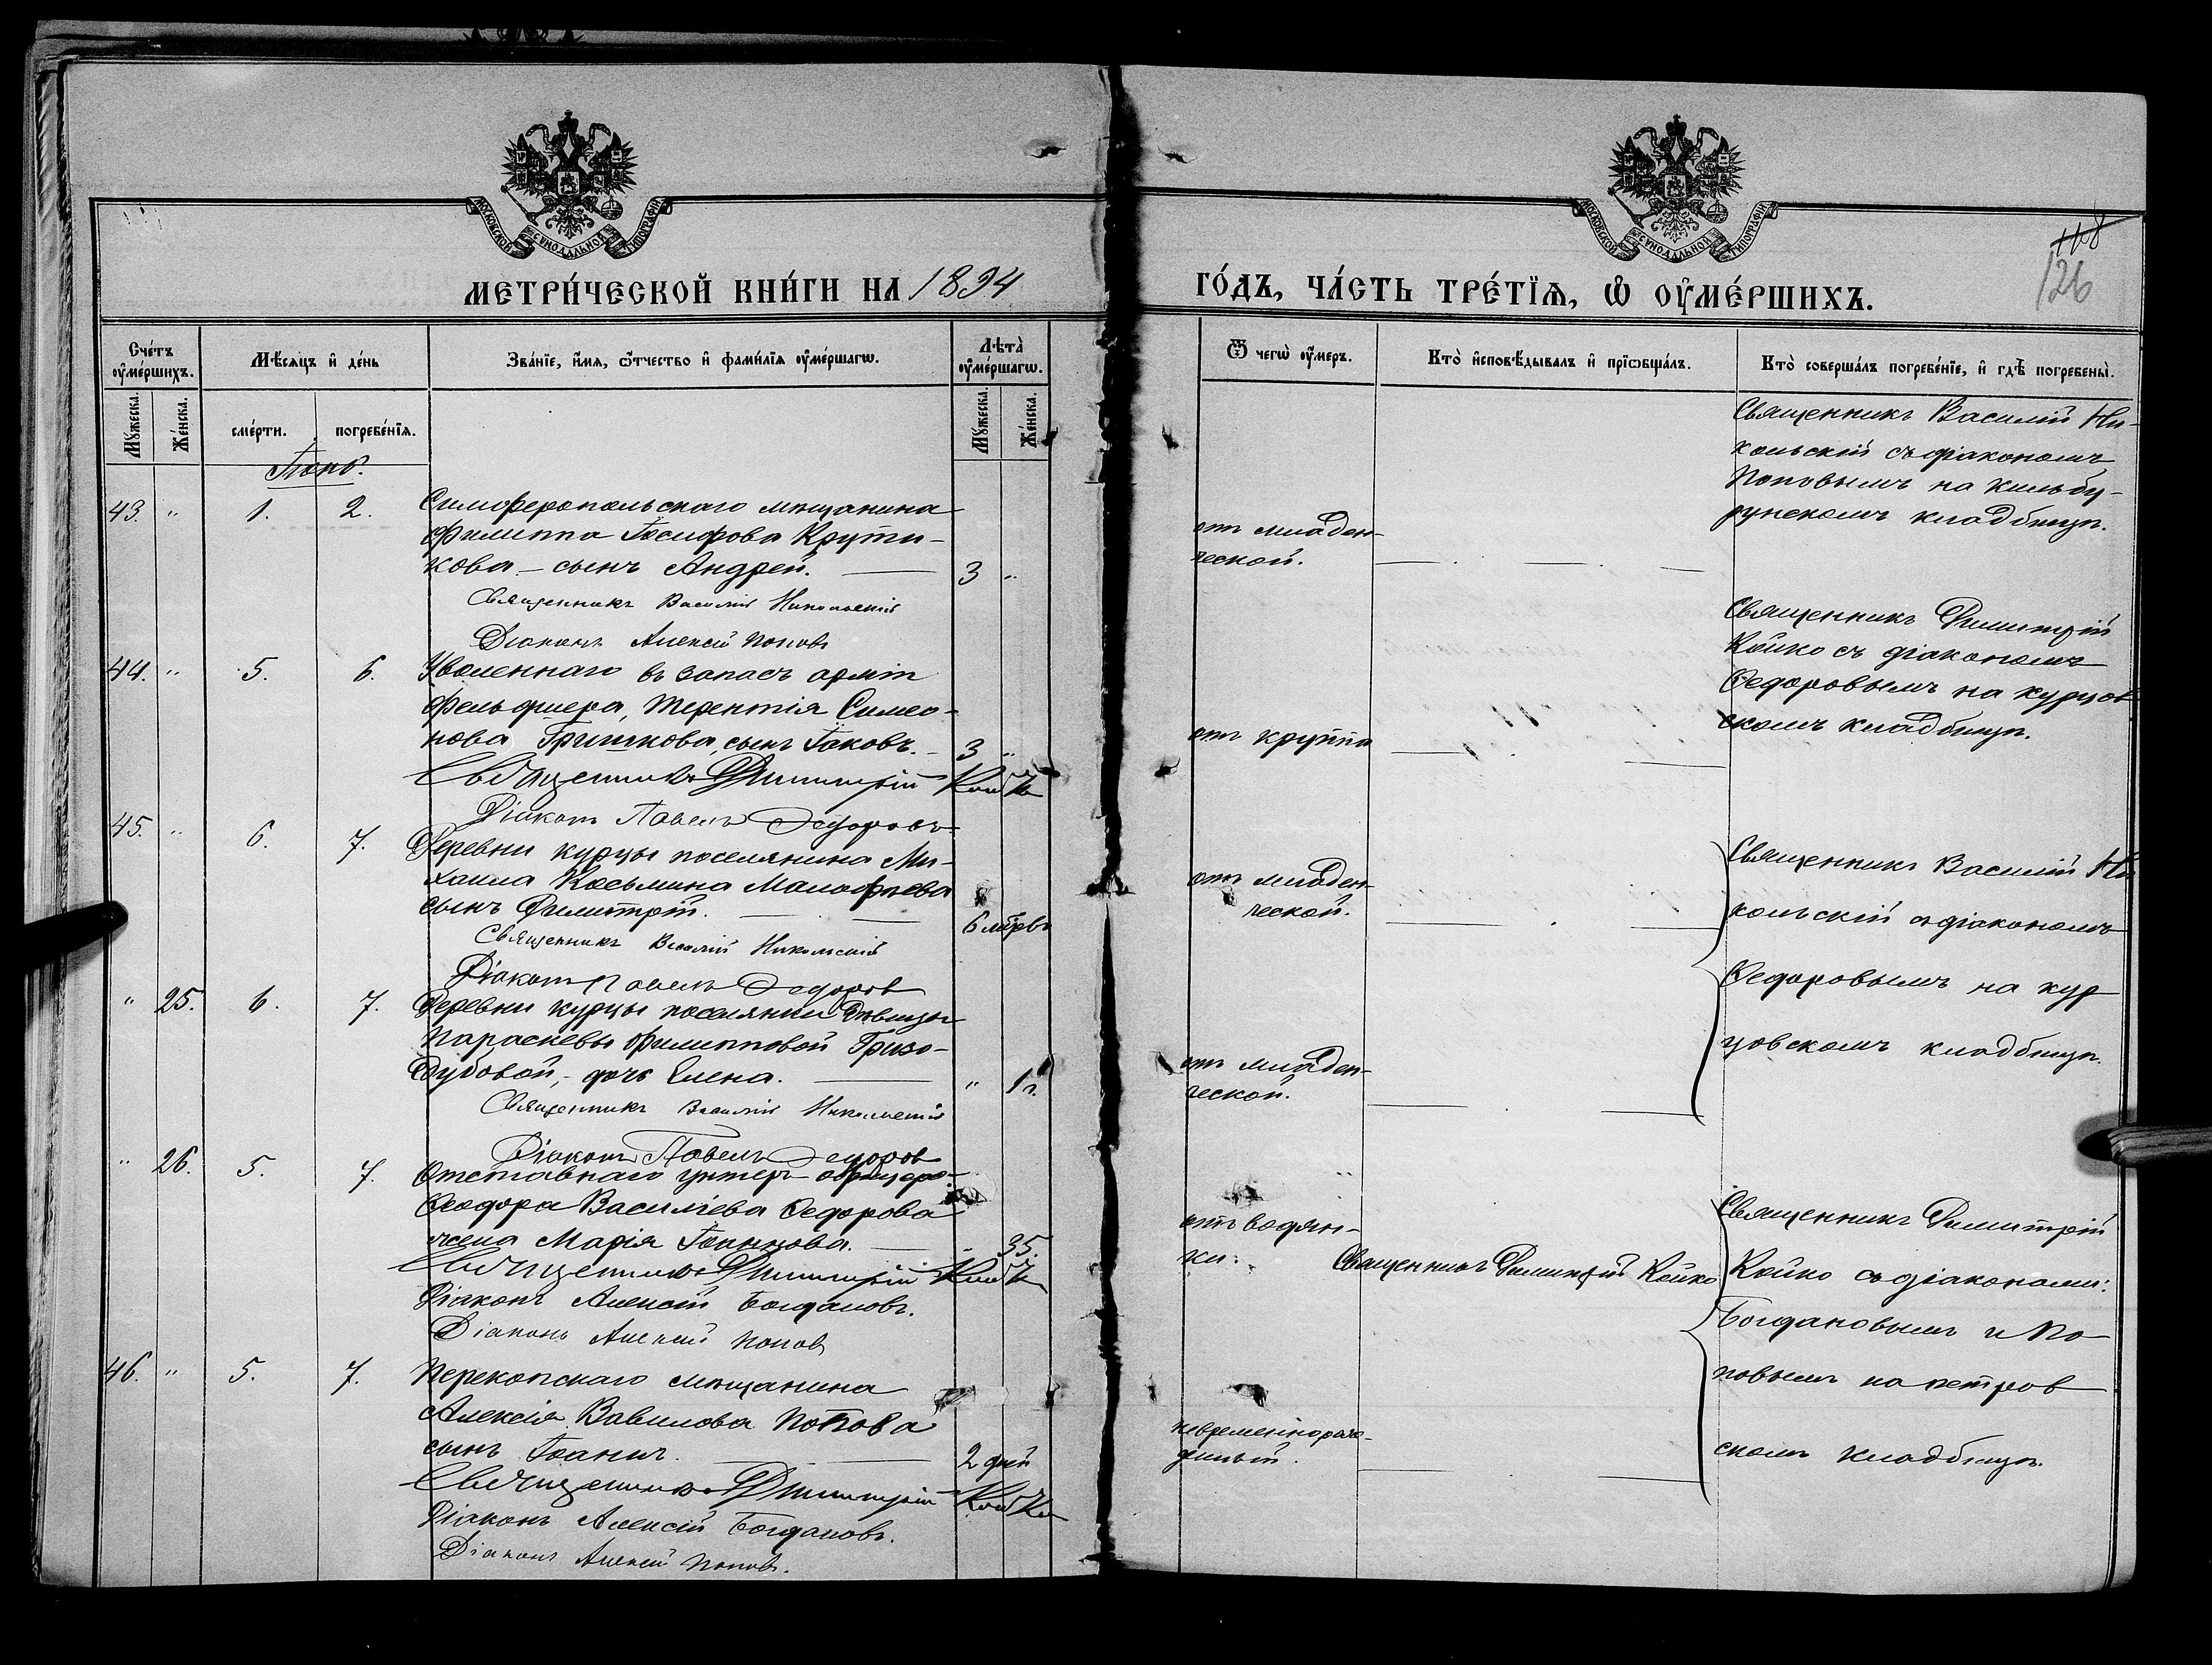 МОСКОВСКОЙ СѴНОДАЛЬНОЙ ТИПОГРАФІИ
МОСКОВСКОЙ СѴНОДАЛЬНОЙ ТИПОГРАФІИ
118
126
МЕТРИ́ЧЕСКОЙ КНИ́ГИ НА 1894
ГО́ДЪ, ЧА́СТЬ ТРЕ́ТЇѦ, Ѡ҆ ОУ҆МЕ́РШИХЪ.
Сче́тъ оу҆ме́ршихъ.
Мѣ́сѧцъ и҆ де́нь
Зва́нїе, и҆́мѧ, ѻ҆́тчество и҆ фами́лїѧ оу҆ме́ршагѡ.
Лѣта̀ оу҆ме́ршагѡ.
Мꙋ́жеска.
Же́нска.
сме́рти.
погребе́нїѧ.
Мꙋ́жеска.
Же́нска.
Ѿ чегѡ̀ оу҆́меръ.
Кто̀ и҆сповѣ́дывалъ и҆ прїѡбща́лъ.
Кто̀ соверша́лъ погребе́нїе, и҆ гдѣ̀ погребены̀.
43. " 1. 2. Симферопольскаго мѣщанина
Филиппа Іосифова Крути-
кова – сынъ Андрей. 3 "
Священникъ Василій Никольскій
Діаконъ Алексѣй Поповъ
отъ младен-
ческой.
Священникъ Василій Ни-
кольскій съ діакономъ
Поповымъ на кильбу-
рунскомъ кладбищѣ.
44. " 5. 6. Уволеннаго въ запасъ арміи
фельдшера, Терентія Симео-
нова Гришкова, сынъ Іаковъ. 3 "
Священникъ Димитрій Койко
Діаконъ Павелъ Ѳедоровъ
отъ крупа
Священникъ Димитрій
Койко съ діакономъ
Ѳедоровымъ на курцов
скомъ кладбищѣ.
45. " 6. 7. Деревни Курцы поселянина Ми-
хаила Косьмина Малофѣева
сынъ Димитрій. 6 мѣс.
Священникъ Василій Никольскій
Діаконъ Павелъ Ѳедоров
отъ младен-
ческой.
Священникъ Василій Ни
кольскій съ діакономъ
Ѳедоровымъ на кур
цовскомъ кладбищѣ.
" 25. 6. 7. Деревни Курцы поселянки дѣвицы
Параскевы Филипповой Гризо-
дубовой, – дочь Елена. " 1 г.
Священникъ Василій Никольскій
Діаконъ Павелъ Ѳедоров
отъ младен-
ческой.
" 26. 5. 7. Отставнаго унтеръ-офицера
Ѳеодора Василіева Ѳедорова
жена Марія Іоаннова. 35.
Священникъ Димитрій Койко
Діаконъ Алексій Богдановъ.
Діаконъ Алексѣй Поповъ
отъ водян-
ки.
Священникъ Димитрій Койко
Священникъ Димитрій
Койко съ діаконами:
Богдановымъ и По-
повымъ на петров
скомъ кладбищѣ.
46. " 5. 7. Перекопскаго мѣщанина
Алексія Вавилова Попова
сынъ Іоаннъ. 2 дней
Священникъ Димитрій Койко
Діаконъ Алексій Богдановъ.
Діаконъ Алексѣй Поповъ.